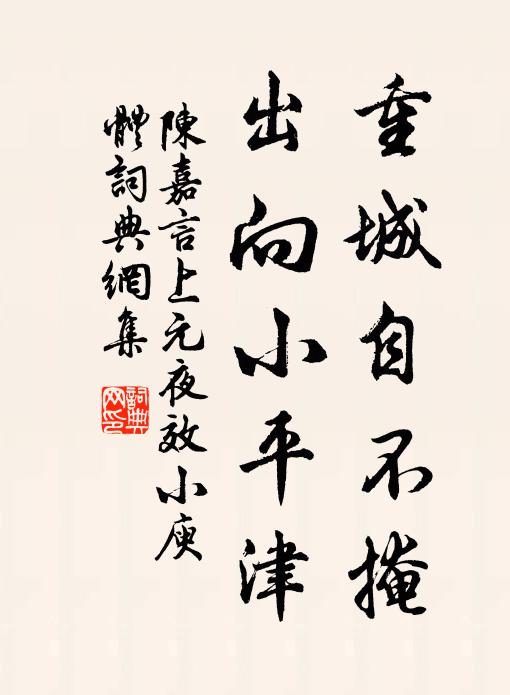 重城自不掩
出向小平津
陳嘉言上元夜效小庾
體詞典網集
詞典
网印